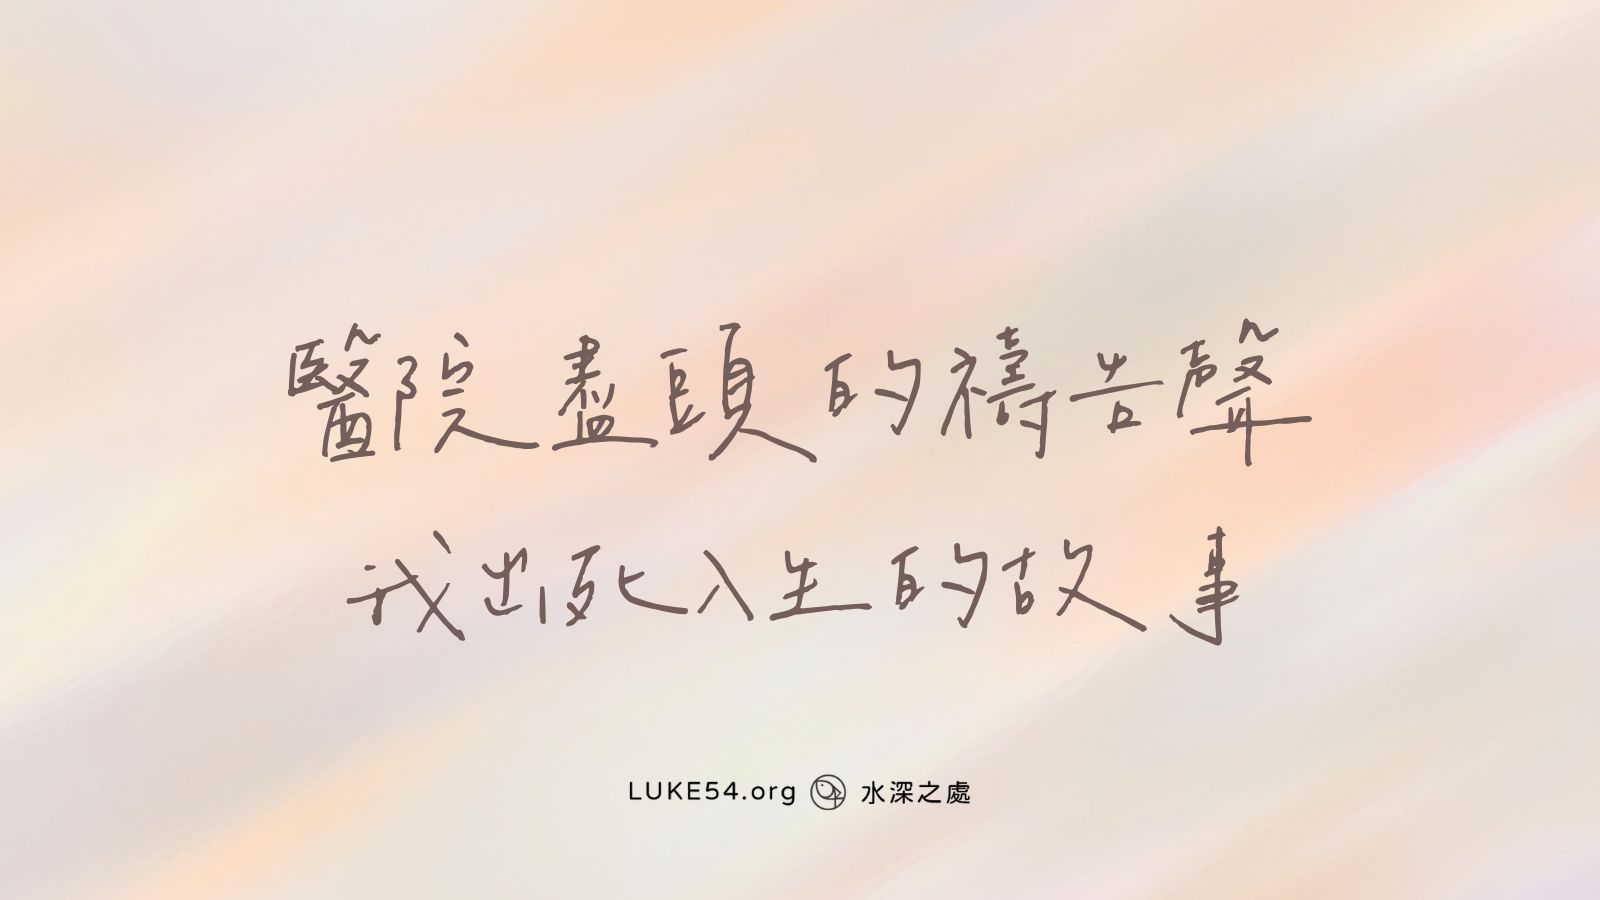 醫院盡頭的禱告聲
我出死入生的故事
LUKE54.org 水深之處